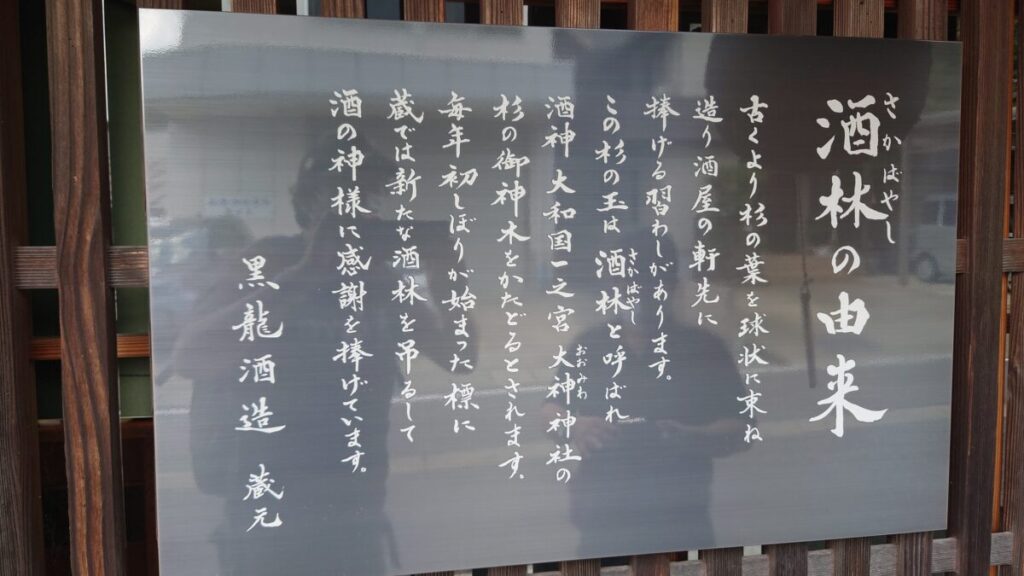 酒林の由来
さかばやし
古くより杉の葉を球状に束ね
造り酒屋の軒先に
捧げる習わしがあります。
この杉の玉は酒林と呼ばれ
さかばやし
酒神大和国一之宮大神神社の
おおみわ
杉の御神木をかたどるとされます。
毎年初しぼりが始まった標に
蔵では新たな酒林を吊るして
酒の神様に感謝を捧げています。
黒龍酒造 蔵元